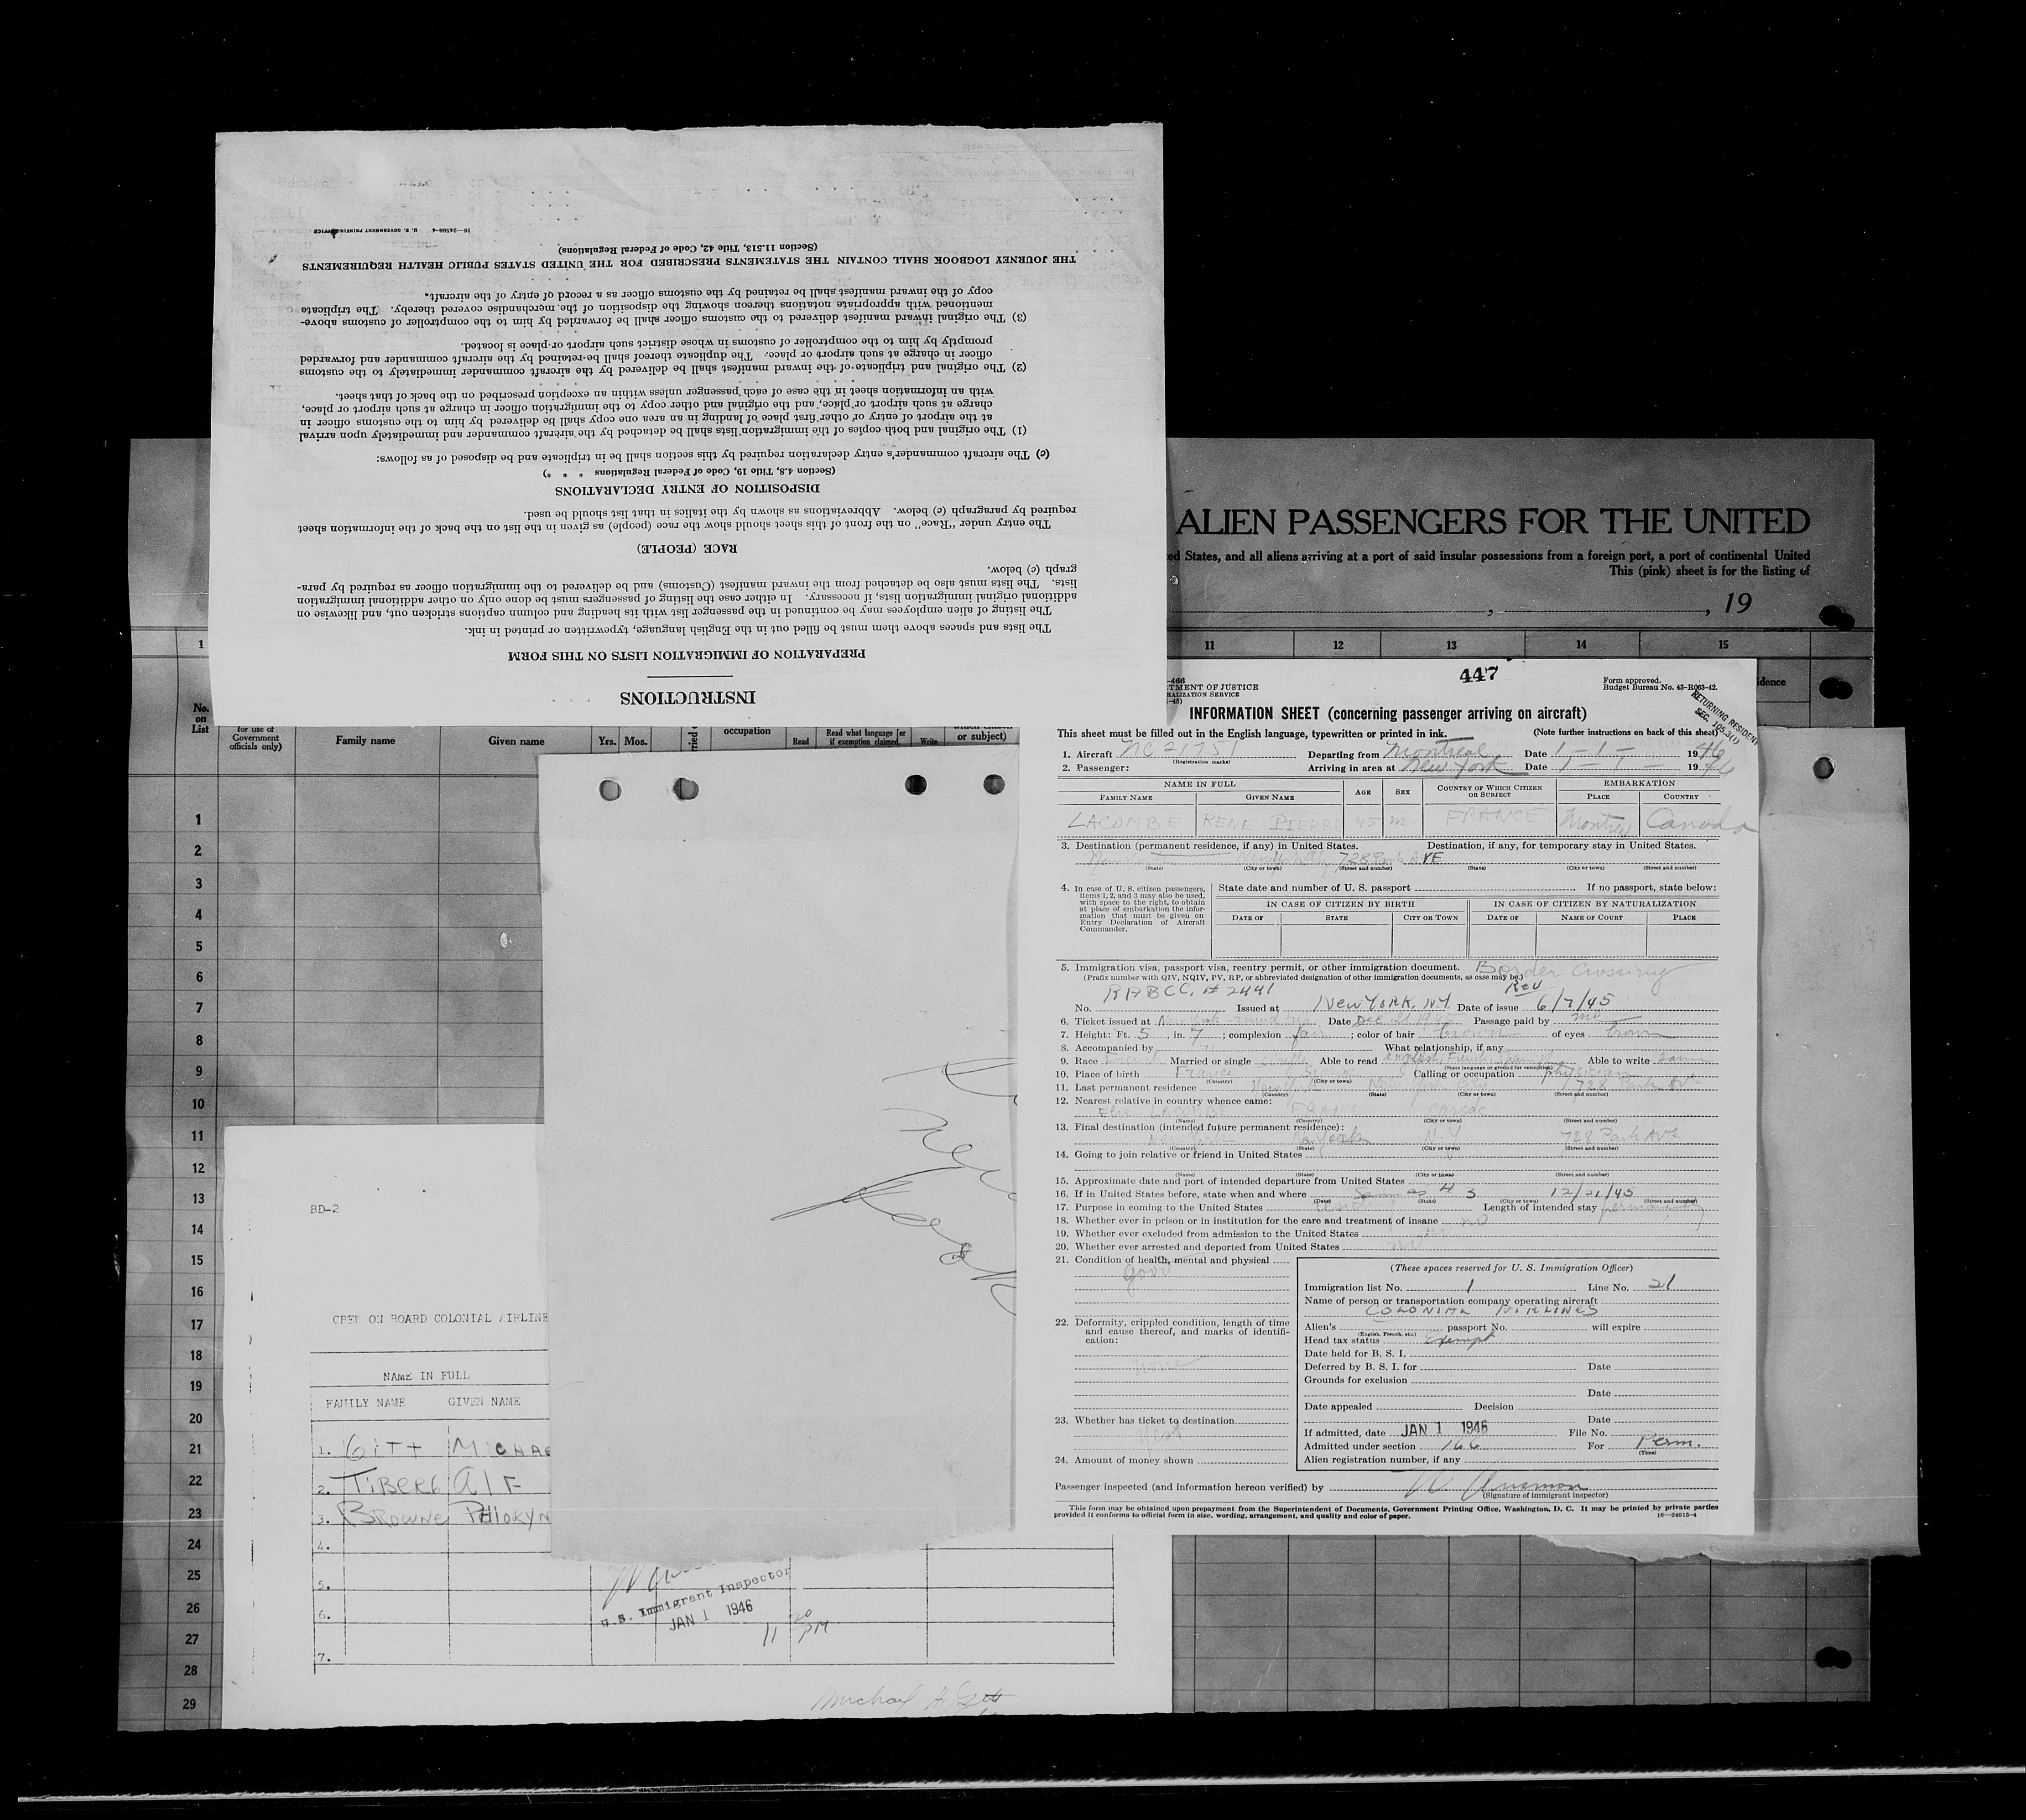 INSTRUCTIONS
PREPARATION OF IMMIGRATION LISTS ON THIS FORM
The lists and spaces above them must be filled out in the English language, typewritten or printed in ink.
The listing of alien employees may be continued in the passenger list with its heading and column captions stricken out, and likewise on
additional original immigration lists, if necessary. In either case the listing of passengers must be done only on other additional immigration
lists. The lists must also be detached from the inward manifest (Customs) and be delivered to the immigration officer as required by para-
graph (c) below.
RACE (PEOPLE)
The entry under "Race" on the front of this sheet should show the race (people) as given in the list on the back of the information sheet
required by paragraph (c) below. Abbreviations as shown by the italics in that list should be used.
DISPOSITION OF ENTRY DECLARATIONS
(Section 4.8, Title 19, Code of Federal Regulations * * *)
(c) The aircraft commander's entry declaration required by this section shall be in triplicate and be disposed of as follows:
(1) The original and both copies of the immigration lists shall be detached by the aircraft commander and immediately upon arrival
at the airport of entry or other first place of landing in an area one copy shall be delivered by him to the customs officer in
charge at such airport or place, and the original and other copy to the immigration officer in charge at such airport or place,
with an information sheet in the case of each passenger unless within an exception prescribed on the back of that sheet.
(2) The original and triplicate of the inward manifest shall be delivered by the aircraft commander immediately to the customs
officer in charge at such airport or place. The duplicate thereof shall be retained by the aircraft commander and forwarded
promptly by him to the comptroller of customs in whose district such airport or place is located.
(3) The original inward manifest delivered to the customs officer shall be forwarded by him to the comptroller of customs above-
mentioned with appropriate notations thereon showing the disposition of the merchandise covered thereby. The triplicate
copy of the inward manifest shall be retained by the customs officer as a record of entry of the aircraft.
THE JOURNEY LOGBOOK SHALL CONTAIN THE STATEMENTS PRESCRIBED FOR THE UNITED STATES PUBLIC HEALTH REQUIREMENTS
(Section 11.513, Title 42, Code of Federal Regulations)
16—24598-4 U. S. GOVERNMENT PRINTING OFFICE
ALIEN PASSENGERS FOR THE UNITED
ed States, and all aliens arriving at a port of said insular possessions from a foreign port, a port of continental United
This (pink) sheet is for the listing of
, , 19
1 11 12 13 14 15
No. on List
for use of Government officials only)
Family name Given name Yrs. Mos. occupation Read Read what language [or if exemption claimed, Write or subject)
idence
1
2
3
4
5
6
7
8
9
10
11
12
13
14
15
16
17
18
19
20
21
22
23
24
25
26
27
28
29
BD-2
CREW ON BOARD COLONIAL AIRLINE
NAME IN FULL
FAMILY NAME GIVEN NAME
1. GITT MICHAE
2. TIBERG ALF
3. BROWNE
4.
5.
6.
7.
U.S. Immigrant Inspector
JAN 1 1946
11 20 PM
Michael A Gitt
447
-466
TMENT OF JUSTICE
RALIZATION SERVICE
-45)
Form approved.
Budget Bureau No. 43-R063-42.
RETURNING RESIDENT
SEC. 105.3(1)
INFORMATION SHEET (concerning passenger arriving on aircraft)
This sheet must be filled out in the English language, typewritten or printed in ink. (Note further instructions on back of this sheet)
1. Aircraft NC 21751 Departing from Montreal Date 1-1- 1946
(Registration marks)
2. Passenger: Arriving in area at New York Date 1-1- 1946
NAME IN FULL AGE SEX COUNTRY OF WHICH CITIZEN OR SUBJECT EMBARKATION
FAMILY NAME GIVEN NAME PLACE COUNTRY
LACOMBE RENE PIERRE 45 m. FRANCE Montreal Canada
3. Destination (permanent residence, if any) in United States. Destination, if any, for temporary stay in United States.
728 Park AVE
(State) (City or town) (Street and number) (State) (City or town) (Street and number)
4. In case of U. S. citizen passengers, items 1, 2, and 3 may also be used, with space to the right, to obtain at place of embarkation the information that must be given on Entry Declaration of Aircraft Commander.
State date and number of U. S. passport If no passport, state below:
IN CASE OF CITIZEN BY BIRTH IN CASE OF CITIZEN BY NATURALIZATION
DATE OF STATE CITY OR TOWN DATE OF NAME OF COURT PLACE
5. Immigration visa, passport visa, reentry permit, or other immigration document. Border Crossing
(Prefix number with QIV, NQIV, PV, RP, or abbreviated designation of other immigration documents, as case may be.)
RABCC. # 2441 Rev
No. Issued at New York, N.Y. Date of issue 6/7/45
6. Ticket issued at New York Date Dec 21 Passage paid by me
7. Height: Ft. 5, in. 7; complexion fair; color of hair brown of eyes brown
8. Accompanied by What relationship, if any
9. Race French Married or single single Able to read Able to write same
(State language or ground for exemption)
10. Place of birth France Calling or occupation physician
(Country) (City or town)
11. Last permanent residence New York City 728 Park Av
(Country) (State) (City or town) (Street and number)
12. Nearest relative in country whence came:
LACOMBE FRANCE
(Name) (Country) (City or town) (Street and number)
13. Final destination (intended future permanent residence):
New York N.Y 728 Park Ave
(Country) (State) (City or town) (Street and number)
14. Going to join relative or friend in United States
(Name) (State) (City or town) (Street and number)
15. Approximate date and port of intended departure from United States
16. If in United States before, state when and where Same as # 3 12/21/45
(Date) (State) (City or town) (Street and number)
17. Purpose in coming to the United States Length of intended stay permanently
18. Whether ever in prison or in institution for the care and treatment of insane no
19. Whether ever excluded from admission to the United States
20. Whether ever arrested and deported from United States no
21. Condition of health, mental and physical
good
22. Deformity, crippled condition, length of time and cause thereof, and marks of identification:
none
23. Whether has ticket to destination
24. Amount of money shown
(These spaces reserved for U. S. Immigration Officer)
Immigration list No. 1 Line No. 21
Name of person or transportation company operating aircraft
COLONIAL AIRLINES
Alien's passport No. will expire
(English, French, etc.)
Head tax status Exempt
Date held for B. S. I.
Deferred by B. S. I. for Date
Grounds for exclusion
Date
Date appealed Decision
Date
If admitted, date JAN 1 1946 File No.
Admitted under section 166 For Perm.
(Time)
Alien registration number, if any
Passenger inspected (and information hereon verified) by
(Signature of immigrant inspector)
This form may be obtained upon prepayment from the Superintendent of Documents, Government Printing Office, Washington, D. C. It may be printed by private parties
provided it conforms to official form in size, wording, arrangement, and quality and color of paper. 16—24915-4